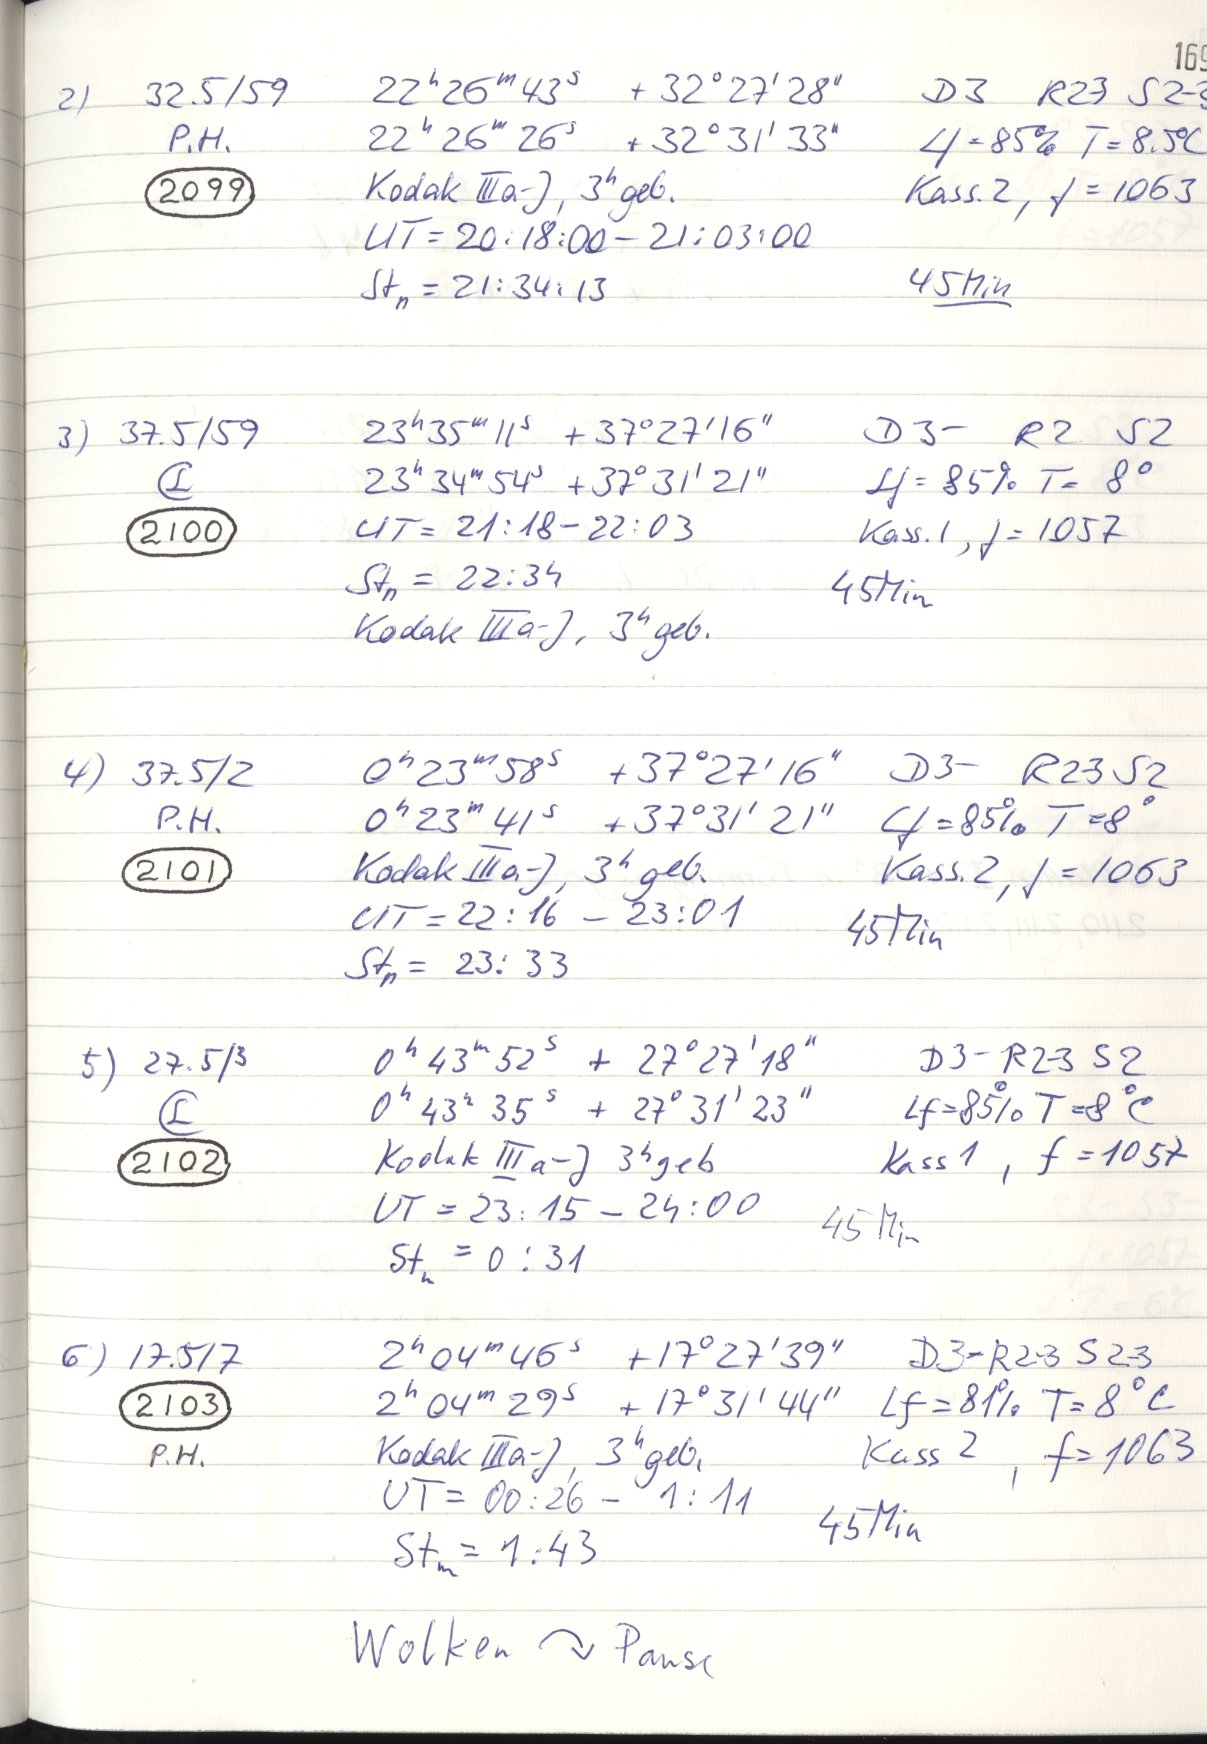 169
2) 32.5/59 22ʰ26ᵐ43ˢ +32°27'28" D3 R23 S2-3
P.H. 22ʰ26ᵐ26ˢ +32°31'33" Lf=85% T=8.5°C
2099 Kodak IIIa-J, 3ʰ geb. Kass. 2, f=1063
UT=20:18:00-21:03:00
Stₙ = 21:34:13 45 Min
3) 37.5/59 23ʰ35ᵐ11ˢ +37°27'16" D3- R2 S2
23ʰ34ᵐ54ˢ +37°31'21" Lf=85% T= 8°
2100 UT= 21:18-22:03 Kass. 1, f=1057
Stₙ = 22:34 45 Min
Kodak IIIa-J, 3ʰ geb.
4) 37.5/2 0ʰ23ᵐ58ˢ +37°27'16" D3- R23 S2
P.H. 0ʰ23ᵐ41ˢ +37°31'21" Lf=85% T=8°
2101 Kodak IIIa-J, 3ʰ geb. Kass. 2, f=1063
UT=22:16 - 23:01 45 Min
Stₙ = 23:33
5) 27.5/3 0ʰ43ᵐ52ˢ + 27°27'18" D3- R2-3 S2
0ʰ43ᵐ35ˢ + 27°31'23" Lf=85% T=8°C
2102 Kodak IIIa-J 3ʰ geb Kass 1, f=1057
UT = 23:15 - 24:00 45 Min
Stₘ = 0:31
6) 17.5/7 2ʰ04ᵐ46ˢ +17°27'39" D3-R2-3 S2-3
2103 2ʰ04ᵐ29ˢ +17°31'44" Lf=81% T=8°C
P.H. Kodak IIIa-J, 3ʰ geb. Kass 2, f=1063
UT= 00:26 - 1:11 45 Min
Stₘ = 1:43
Wolken ↷ Pause